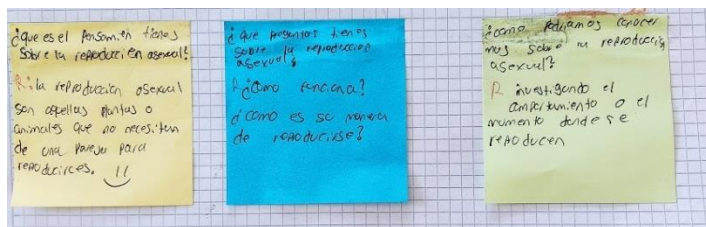 ¿que es el Pensamien tienes
sobre la reproducción asexual?
R: la reproduccion asexual
son aquellas plantas o
animales que no necesitan
de una pareja para
reproducirces.
¿que preguntas tienes
sobre la reproduccion
asexual?
R ¿Como funciona?
¿como es su manera
de reproducirse?
¿como podriamos conocer
mas sobre la reproducción
asexual?
R investigando el
comportamiento o el
momento donde se
reproducen